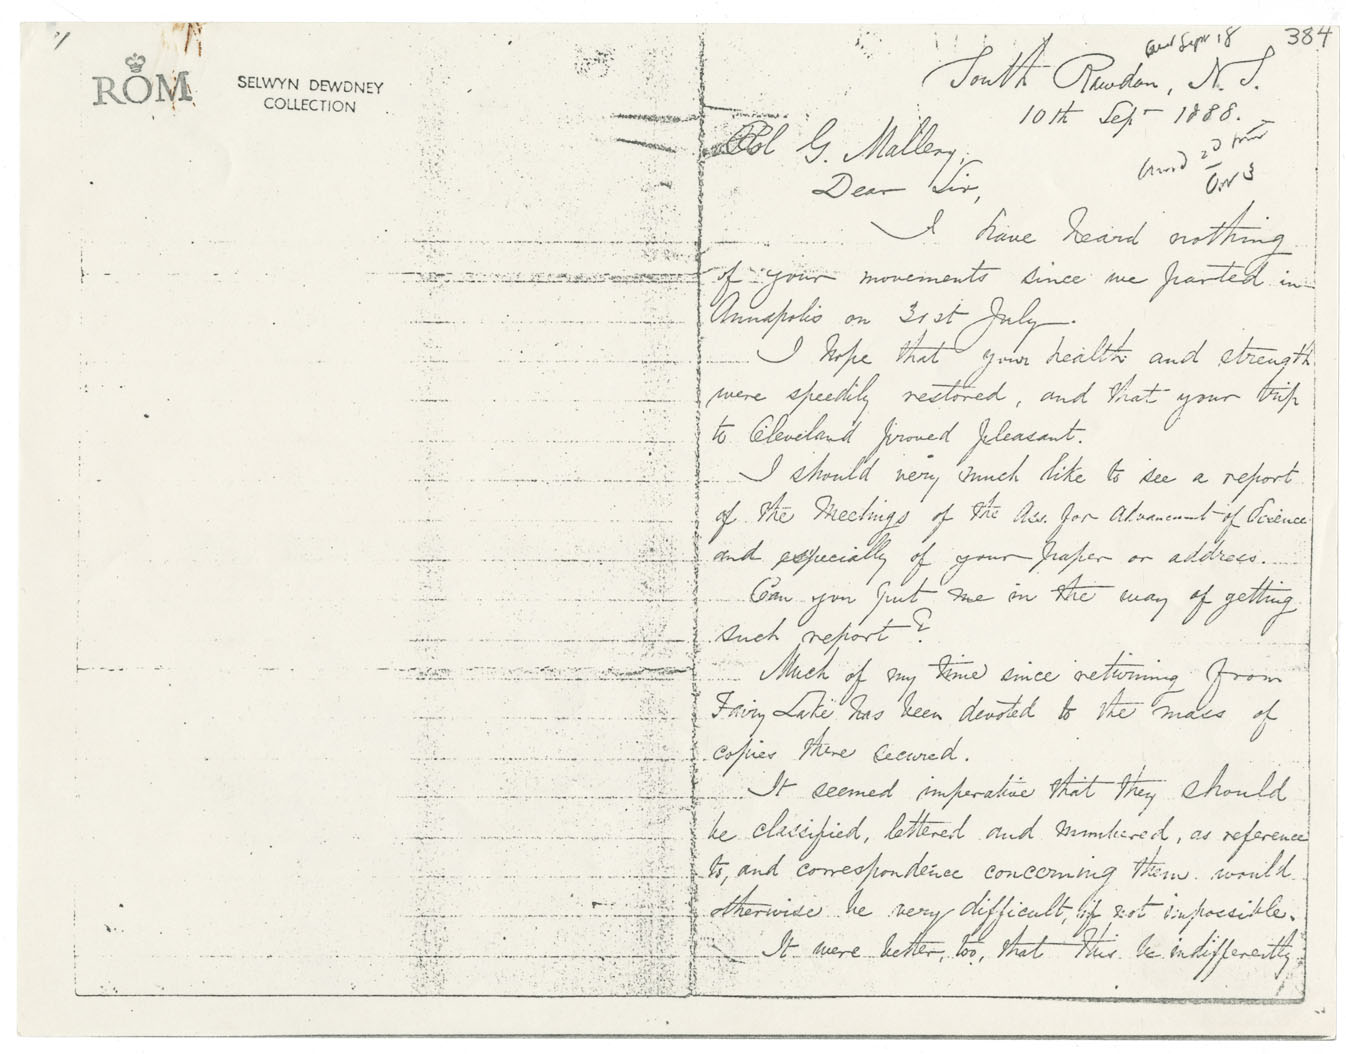 ROM
SELWYN DEWDNEY
COLLECTION
384
Sept 18
South Rawdon, N.S.
10th Sept 1888.
Col G. Mallery,
Dear Sir,
I have heard nothing
of your movements since we parted in
Annapolis on 31st July.
I hope that your health and strength
were speedily restored, and that your trip
to Cleveland proved pleasant.
I should very much like to see a report
of the Meetings of the Ass. for Advancement of Science
and especially of your paper or address.
Can you put me in the way of getting
such report?
Much of my time since returning from
Fairy Lake has been devoted to the mass of
copies there secured.
It seemed imperative that they should
be classified, lettered and numbered, as reference
to, and correspondence concerning them would
otherwise be very difficult, if not impossible.
It were better, too, that this be indifferently